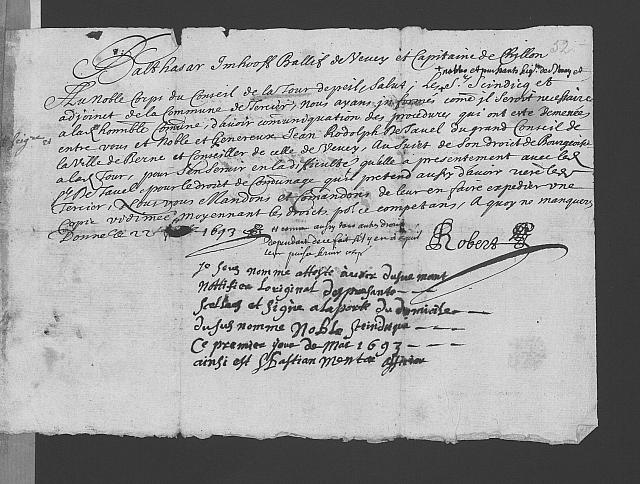 52
Balthasar Imhooff Ballif de Vevey et Capitaine de Chillon
Au Noble Corps du Conseil de la Tour de peil, Salut; les Srs. Scindicq et
adjoinct de la Commune de Tercier, nous ayans informés come il seroit necessaire
a lad. honble Comune, d'avoir comunication des procedures qui ont esté demenées
entre vous et Noble et Genereux Jean Rodolph De Tavel du grand Conseil de
la Ville de Berne et Conseiller de celle de Vevey, Au Suict de Son droict de Bourgeoisie
a lad. Tour, pour S'en Servir en la difficulté qu'elle a presentement avec led.
Sr. De Tavel pour le droict de comunage qu'il pretend aussy d'avoir vere led.
Tercier, Nous vous Mandons et Comandons de leur en faire expedier vne
Copie vidimée moyennant les droicts pol ce competans, A quoy ne manquers
Donné le 22 1693
et comme aussy tous autres droicts
dependant de ce fait
Robert
Je Sous nomme atteste avoir dusuemant
Nottifiéz Loriginal des presante
Scellees et Signe a la porte du domicile
du sus nomme Noble Seindique
Ce premier jour de Mar 1693
ainsi est Sebastian Mentha officier